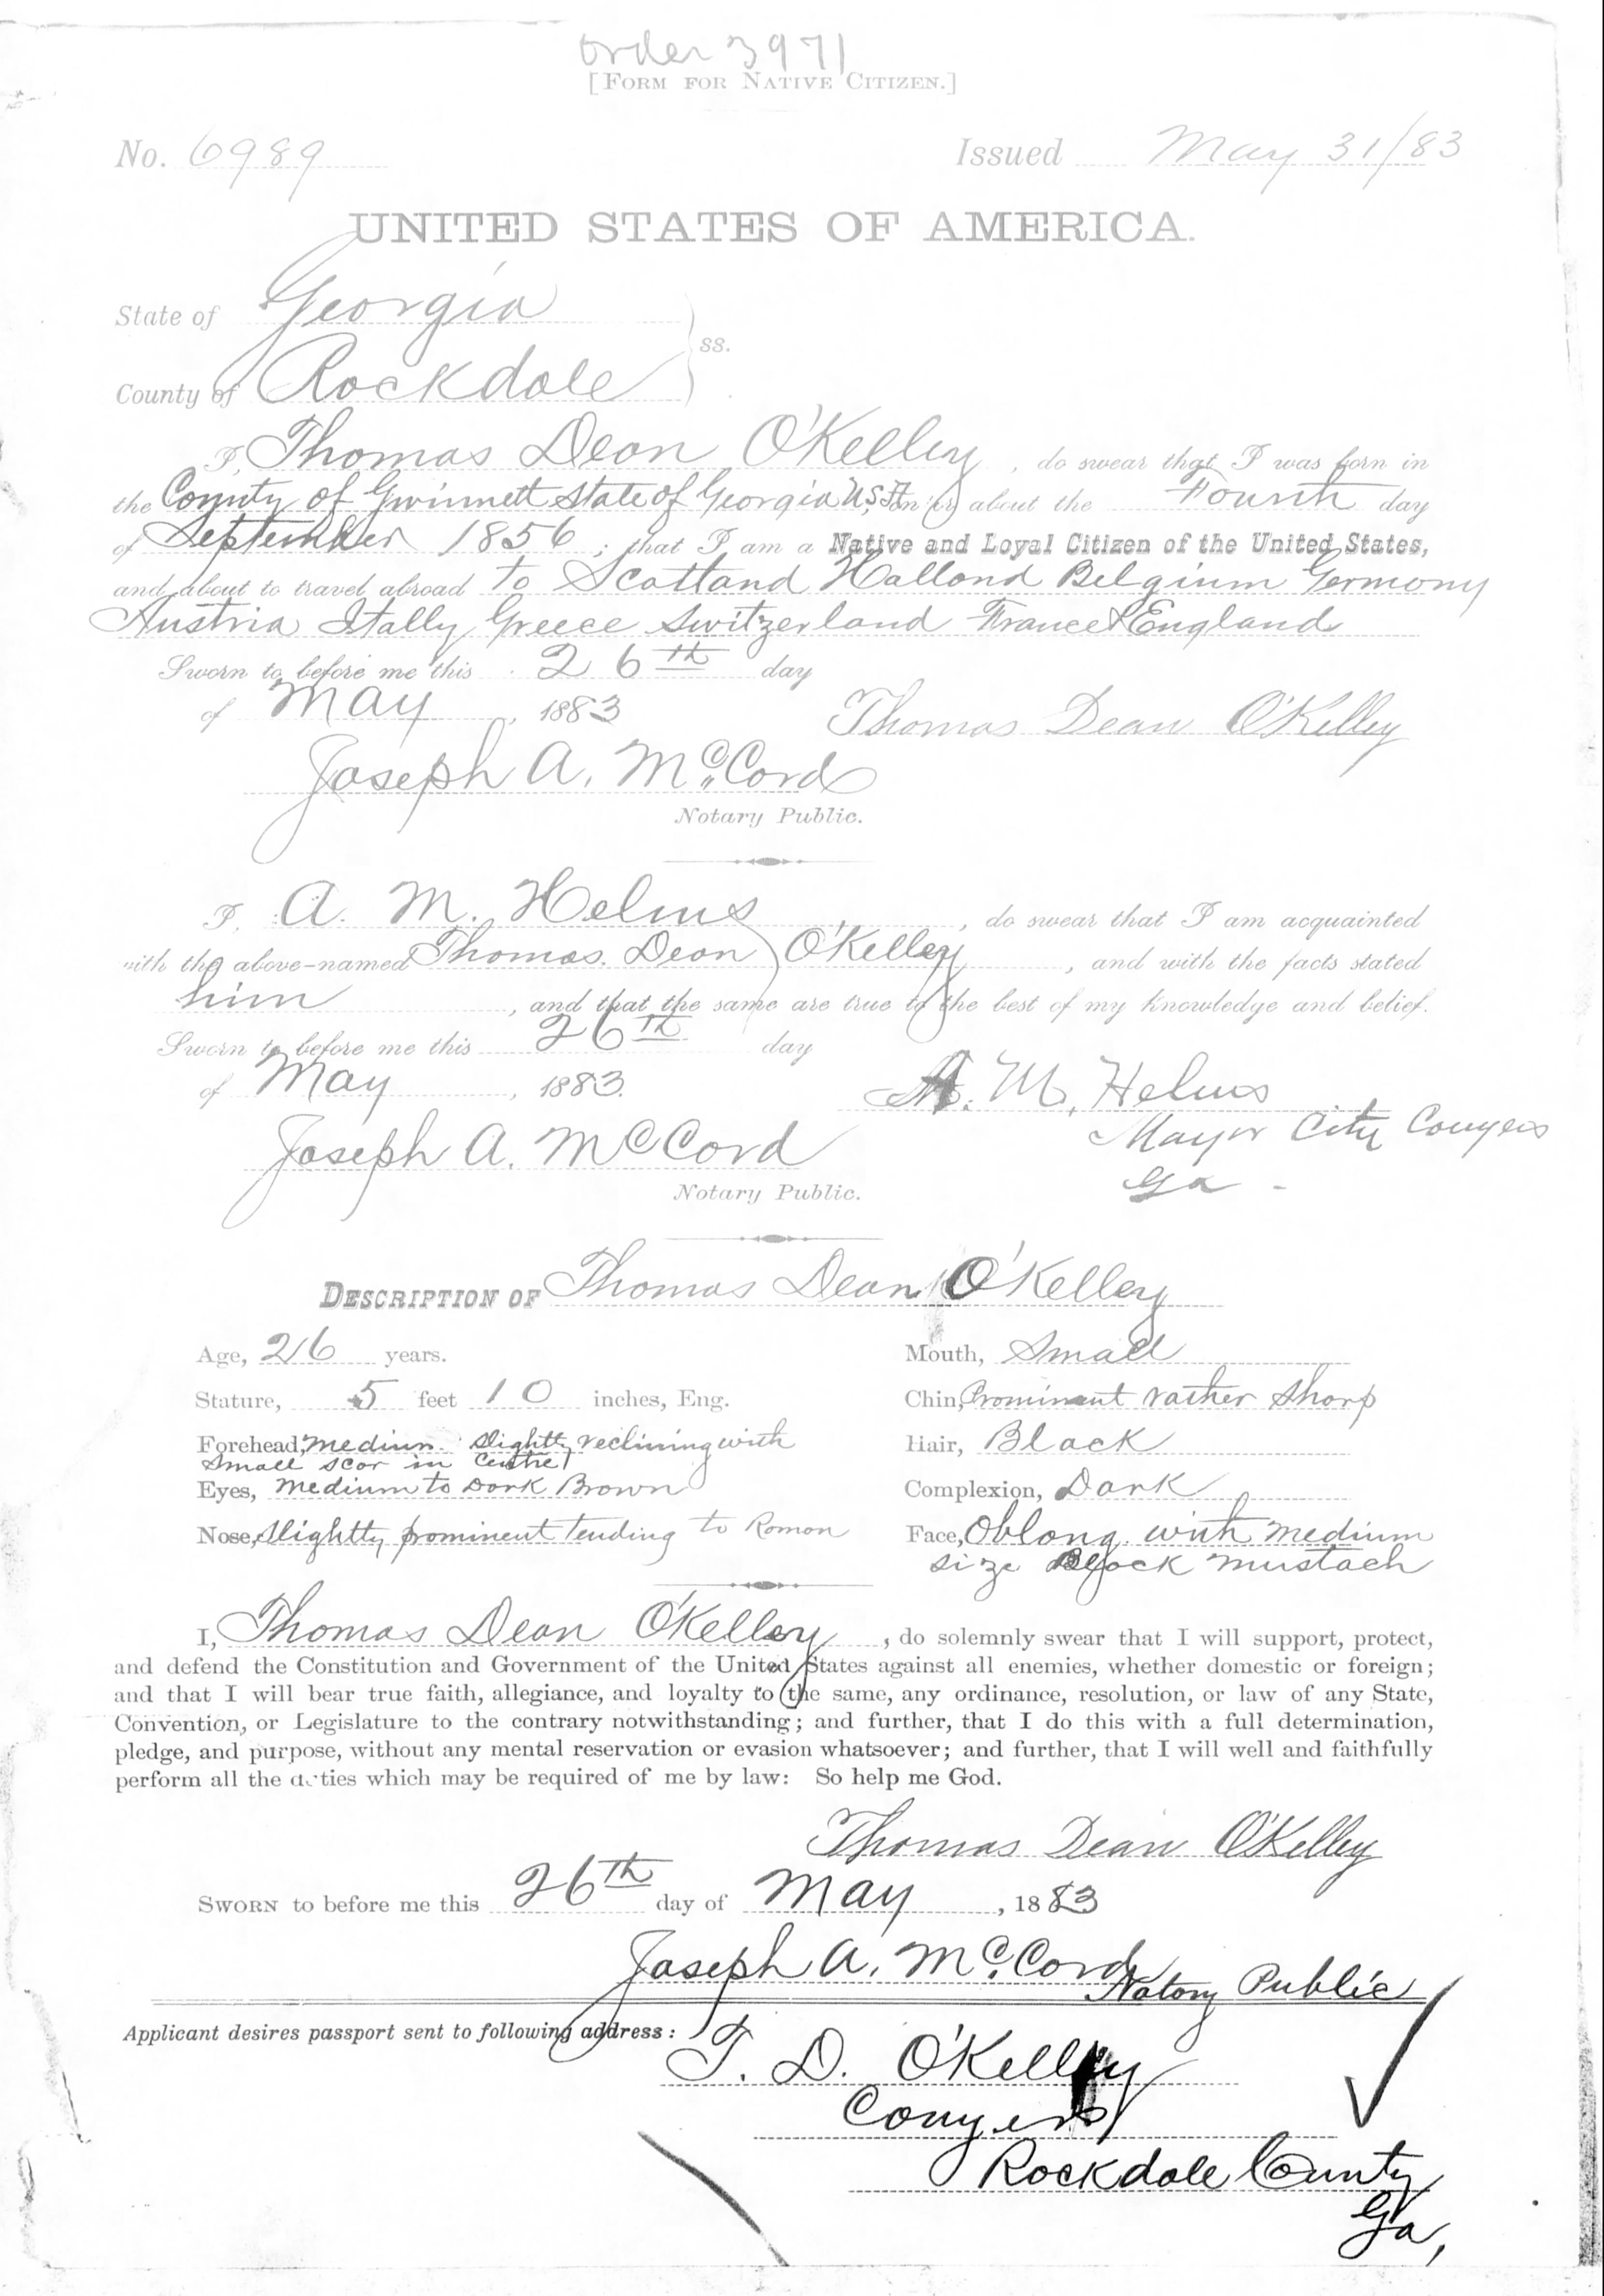 order 3971
[FORM FOR NATIVE CITIZEN.]
No. 6989 Issued May 31/83
UNITED STATES OF AMERICA.
State of Georgia
ss.
County of Rockdale
I, Thomas Dean O'Kelley, do swear that I was born in
the County of Gwinnett State of Georgia U.S.A. on or about the Fourth day
of September 1856; that I am a Native and Loyal Citizen of the United States,
and about to travel abroad to Scotland Holland Belgium Germany
Austria Itally Greece Switzerland France & England
Sworn to before me this 26th day
of May, 1883
Thomas Dean O'Kelley
Joseph A. McCord
Notary Public.
I, A. M. Helms, do swear that I am acquainted
with the above-named Thomas Dean O'Kelley, and with the facts stated
him, and that the same are true to the best of my knowledge and belief.
Sworn to before me this 26th day
of May, 1883.
A. M. Helms
Mayor City Conyers
Ga -
Joseph A. McCord
Notary Public.
DESCRIPTION OF Thomas Dean O'Kelley
Age, 26 years. Mouth, Small
Stature, 5 feet 10 inches, Eng. Chin, Prominent rather Sharp
Forehead, medium slightly reclining with Hair, Black
small scar in centre
Eyes, medium to Dark Brown Complexion, Dark
Nose, slightly prominent tending to Roman Face, Oblong with medium
size Black mustach
I, Thomas Dean O'Kelley, do solemnly swear that I will support, protect,
and defend the Constitution and Government of the United States against all enemies, whether domestic or foreign;
and that I will bear true faith, allegiance, and loyalty to the same, any ordinance, resolution, or law of any State,
Convention, or Legislature to the contrary notwithstanding; and further, that I do this with a full determination,
pledge, and purpose, without any mental reservation or evasion whatsoever; and further, that I will well and faithfully
perform all the duties which may be required of me by law: So help me God.
Thomas Dean O'Kelley
SWORN to before me this 26th day of May, 1883
Joseph A. McCord Notary Public
Applicant desires passport sent to following address:
T. D. O'Kelley
Conyers
Rockdale County
Ga,